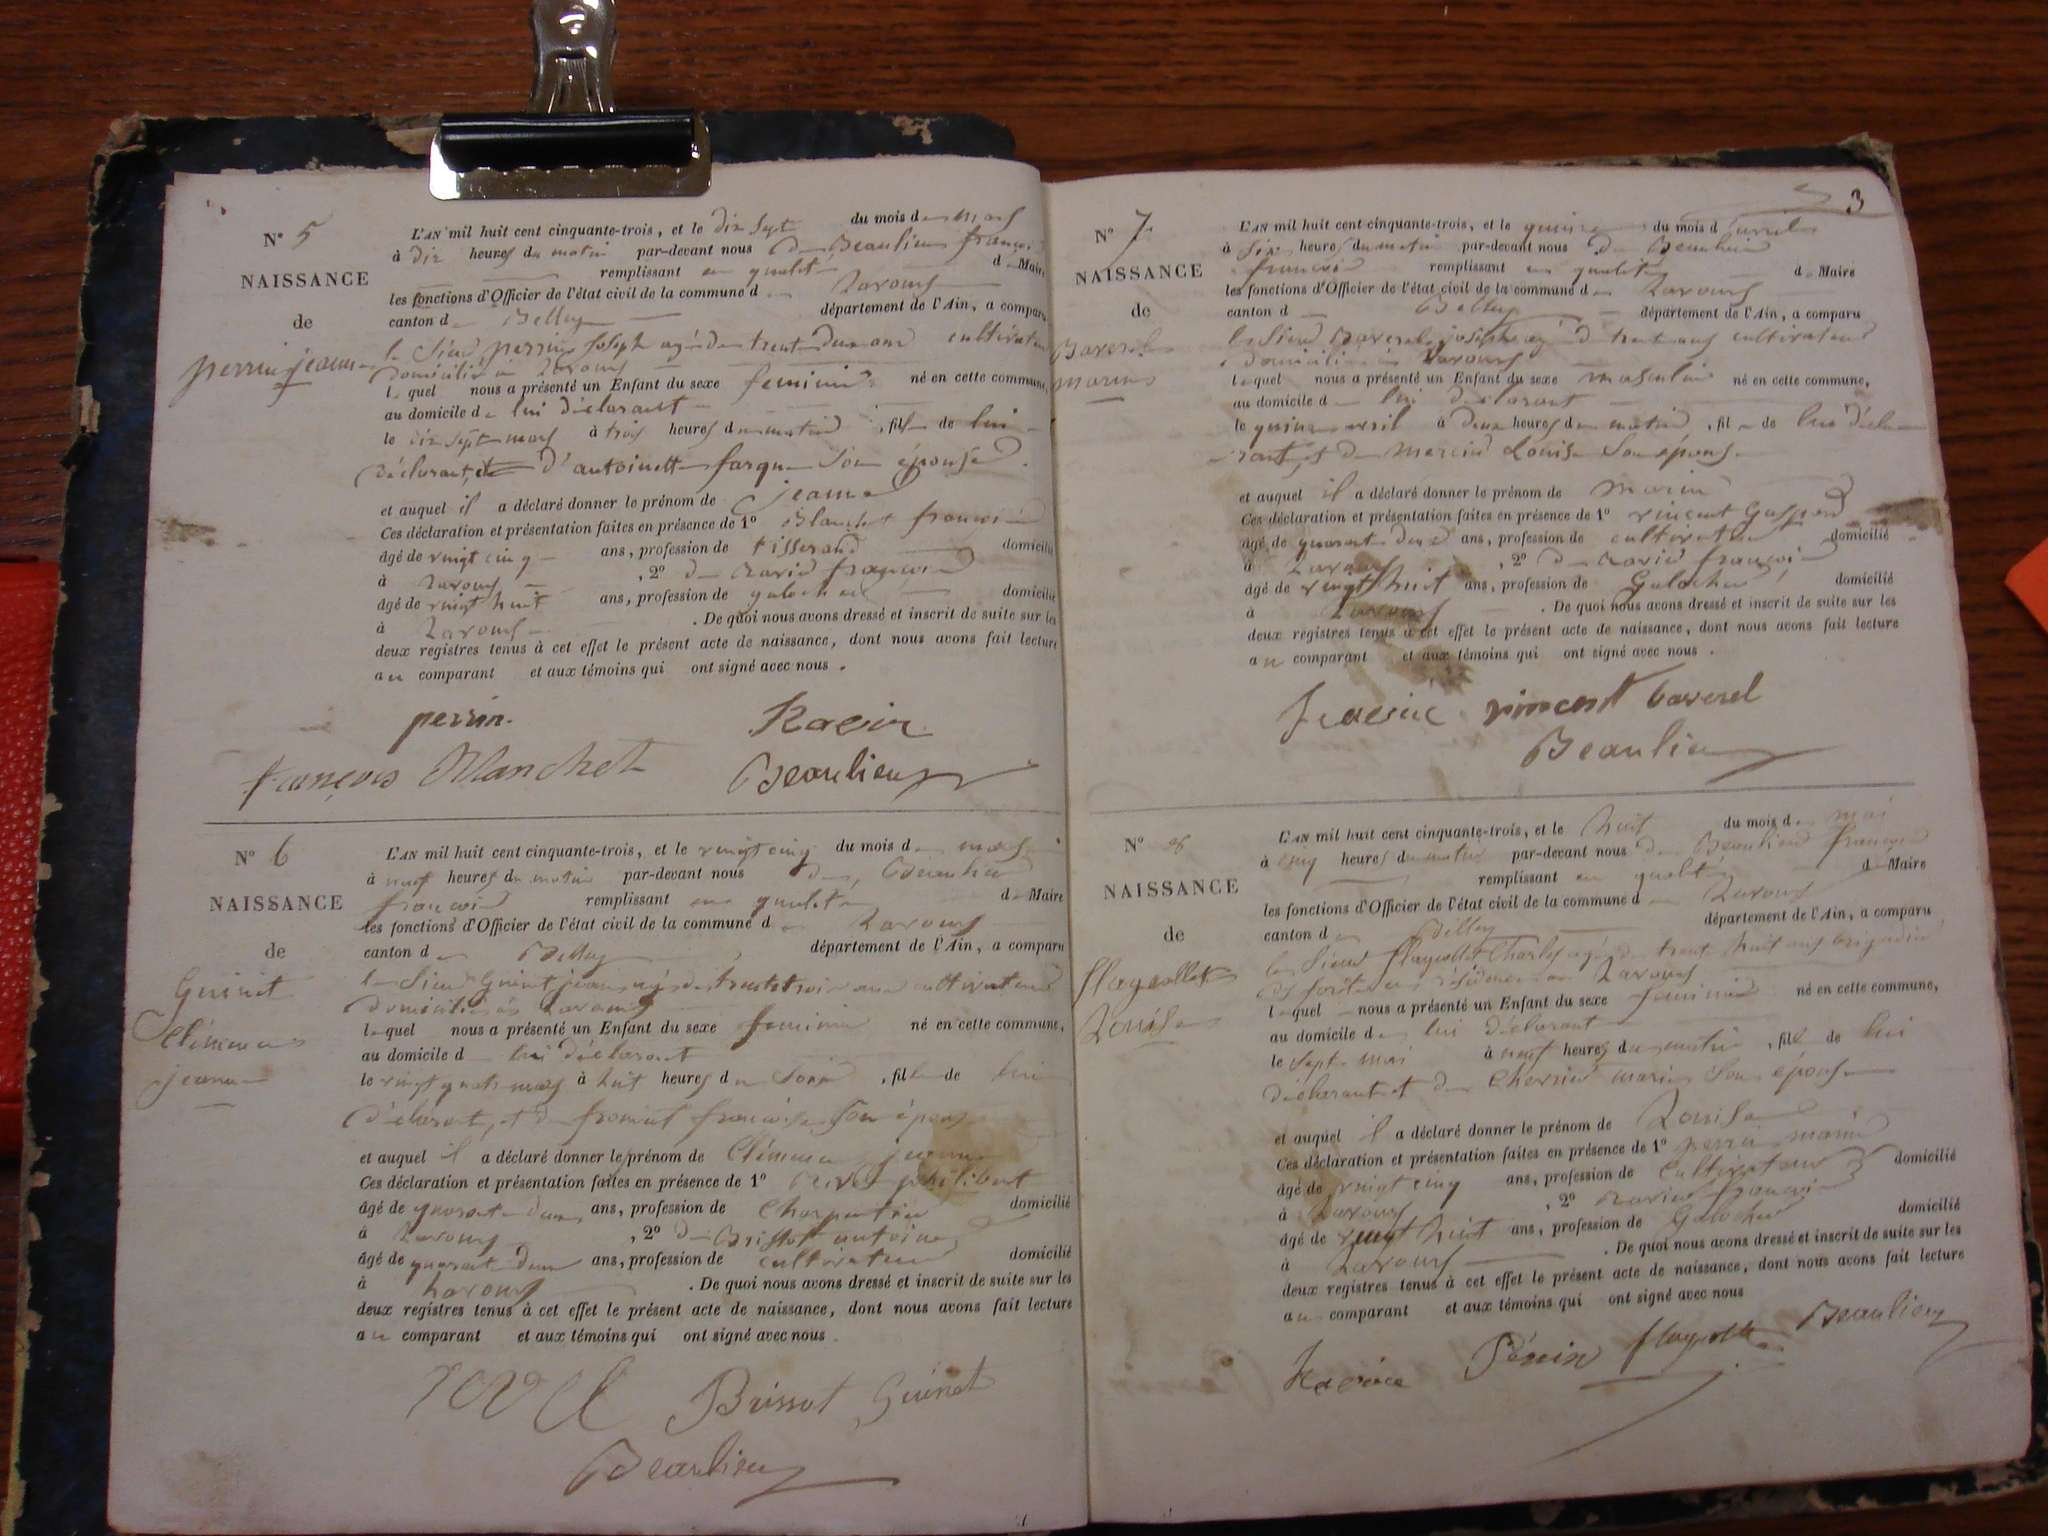 N° 5
NAISSANCE
de
perrin jeanne
L'AN mil huit cent cinquante-trois, et le dix sept du mois de mars
à dix heures du matin par-devant nous De Beaulieu françois
remplissant en qualité de Maire
les fonctions d'Officier de l'état civil de la commune de Lavours
canton de Belley département de l'Ain, a comparu
le Sieur perrin Joseph agé de trente deux ans cultivateur
domicilié à Lavours
lequel nous a présenté un Enfant du sexe feminin né en cette commune,
au domicile de lui déclarant
le dix sept mars à trois heures du matin, fille de lui
déclarant, et d'antoinette farque Son épouse
et auquel il a déclaré donner le prénom de jeanne
Ces déclaration et présentation faites en présence de 1° Blanchet françois
âgé de vingt cinq ans, profession de tisserand domicilié
à Lavours, 2° de Ravier françois
âgé de vingt huit ans, profession de galocher domicilié
à Lavours. De quoi nous avons dressé et inscrit de suite sur les
deux registres tenus à cet effet le présent acte de naissance, dont nous avons fait lecture
au comparant et aux témoins qui ont signé avec nous.
perrin Ravier
françois Blanchet Beaulieu
N° 6
NAISSANCE
de
Guinet
Clémence
jeanne
L'AN mil huit cent cinquante-trois, et le vingt cinq du mois de mars
à neuf heures du matin par-devant nous De Beaulieu
françois remplissant en qualité de Maire
les fonctions d'Officier de l'état civil de la commune de Lavours
canton de Belley département de l'Ain, a comparu
le Sieur Guinet jean agé de trente trois ans cultivateur
domicilié à Lavours
lequel nous a présenté un Enfant du sexe feminin né en cette commune,
au domicile de lui déclarant
le vingt quatre mars à huit heures du Soir, fille de lui
déclarant, et de françoise Son épouse
et auquel il a déclaré donner le prénom de Clémence jeanne
Ces déclaration et présentation faites en présence de 1° philibert
âgé de quarante deux ans, profession de Charpentier domicilié
à Lavours, 2° de Brissot antoine
âgé de quarante deux ans, profession de cultivateur domicilié
à Lavours. De quoi nous avons dressé et inscrit de suite sur les
deux registres tenus à cet effet le présent acte de naissance, dont nous avons fait lecture
au comparant et aux témoins qui ont signé avec nous.
Brissot Guinet
Beaulieu
3
N° 7
NAISSANCE
de
Baverel
marin
L'AN mil huit cent cinquante-trois, et le quinze du mois d'avril
à Six heures du matin par-devant nous De Beaulieu
françois remplissant en qualité de Maire
les fonctions d'Officier de l'état civil de la commune de Lavours
canton de Belley département de l'Ain, a comparu
le Sieur Baverel joseph agé de trente ans cultivateur
domicilié à Lavours
lequel nous a présenté un Enfant du sexe masculin né en cette commune,
au domicile de lui déclarant
le quinze avril à deux heures du matin, fils de lui décla
rant, et de mercier Louise Son épouse
et auquel il a déclaré donner le prénom de marin
Ces déclaration et présentation faites en présence de 1° vincent Gaspard
âgé de quarante deux ans, profession de cultivateur domicilié
à Lavours, 2° de Ravier françois
âgé de vingt huit ans, profession de Galocher domicilié
à Lavours. De quoi nous avons dressé et inscrit de suite sur les
deux registres tenus à cet effet le présent acte de naissance, dont nous avons fait lecture
au comparant et aux témoins qui ont signé avec nous.
vincent baverel
Beaulieu
N° 8
NAISSANCE
de
flageollet
Louise
L'AN mil huit cent cinquante-trois, et le huit du mois de mai
à cinq heures du matin par-devant nous De Beaulieu françois
remplissant en qualité de Maire
les fonctions d'Officier de l'état civil de la commune de Lavours
canton de Belley département de l'Ain, a comparu
le Sieur flageollet Charles agé de trente huit ans brigadier
en résidence à Lavours
lequel nous a présenté un Enfant du sexe feminin né en cette commune,
au domicile de lui déclarant
le Sept mai à neuf heures du matin, fille de lui
déclarant et de marie Son épouse
et auquel il a déclaré donner le prénom de Louise
Ces déclaration et présentation faites en présence de 1° perrin marin
âgé de vingt cinq ans, profession de Cultivateur domicilié
à Lavours, 2° Ravier françois
âgé de vingt huit ans, profession de Galocher domicilié
à Lavours. De quoi nous avons dressé et inscrit de suite sur les
deux registres tenus à cet effet le présent acte de naissance, dont nous avons fait lecture
au comparant et aux témoins qui ont signé avec nous
flageollet Beaulieu